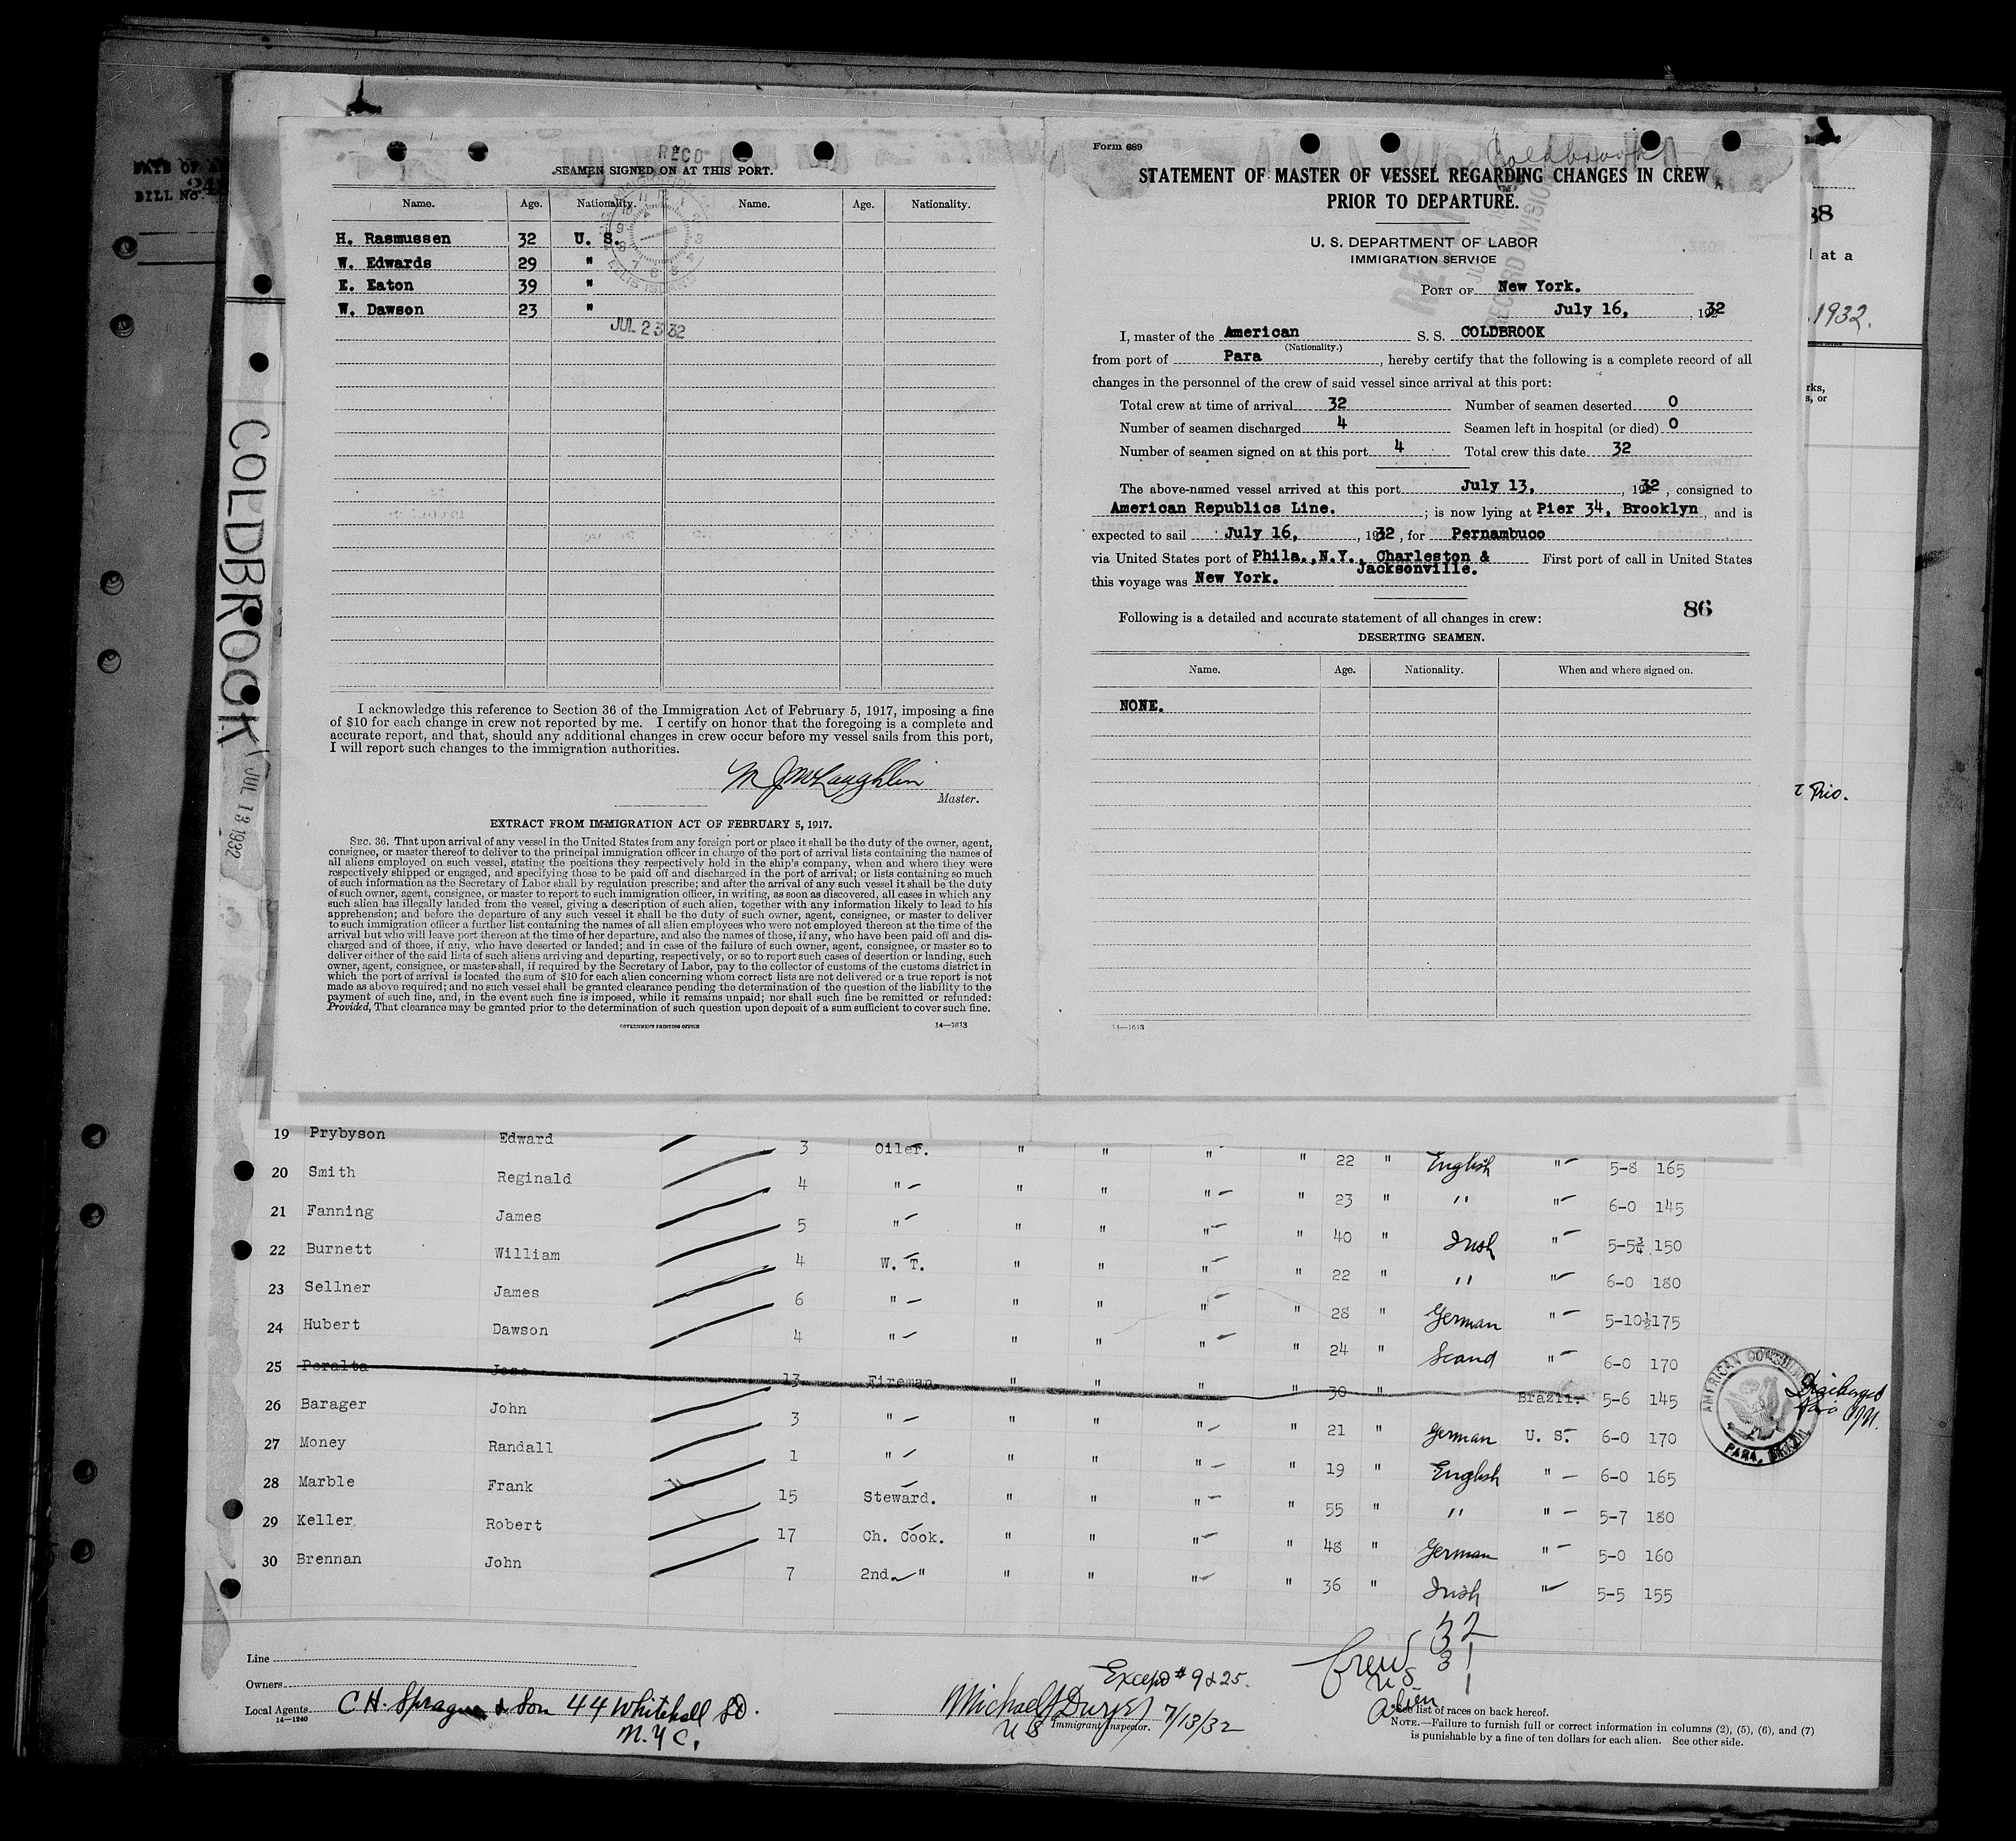 DATE OF
BILL No.
COLDBROOK
JUL 13 1932
RECD
SEAMEN SIGNED ON AT THIS PORT.
Name. Age. Nationality. Name. Age. Nationality.
H. Rasmussen 32 U. S.
W. Edwards 29 "
E. Eaton 39 "
W. Dawson 23 "
ELLIS ISLAND
JUL 23 32
I acknowledge this reference to Section 36 of the Immigration Act of February 5, 1917, imposing a fine
of $10 for each change in crew not reported by me. I certify on honor that the foregoing is a complete and
accurate report, and that, should any additional changes in crew occur before my vessel sails from this port,
I will report such changes to the immigration authorities.
M J McLaughlin
Master.
EXTRACT FROM IMMIGRATION ACT OF FEBRUARY 5, 1917.
SEC. 36. That upon arrival of any vessel in the United States from any foreign port or place it shall be the duty of the owner, agent,
consignee, or master thereof to deliver to the principal immigration officer in charge of the port of arrival lists containing the names of
all aliens employed on such vessel, stating the positions they respectively hold in the ship's company, when and where they were
respectively shipped or engaged, and specifying those to be paid off and discharged in the port of arrival; or lists containing so much
of such information as the Secretary of Labor shall by regulation prescribe; and after the arrival of any such vessel it shall be the duty
of such owner, agent, consignee, or master to report to such immigration officer, in writing, as soon as discovered, all cases in which any
such alien has illegally landed from the vessel, giving a description of such alien, together with any information likely to lead to his
apprehension; and before the departure of any such vessel it shall be the duty of such owner, agent, consignee, or master to deliver
to such immigration officer a further list containing the names of all alien employees who were not employed thereon at the time of the
arrival but who will leave port thereon at the time of her departure, and also the names of those, if any, who have been paid off and dis-
charged and of those, if any, who have deserted or landed; and in case of the failure of such owner, agent, consignee, or master so to
deliver either of the said lists of such aliens arriving and departing, respectively, or so to report such cases of desertion or landing, such
owner, agent, consignee, or master shall, if required by the Secretary of Labor, pay to the collector of customs of the customs district in
which the port of arrival is located the sum of $10 for each alien concerning whom correct lists are not delivered or a true report is not
made as above required; and no such vessel shall be granted clearance pending the determination of the question of the liability to the
payment of such fine, and, in the event such fine is imposed, while it remains unpaid; nor shall such fine be remitted or refunded:
Provided, That clearance may be granted prior to the determination of such question upon deposit of a sum sufficient to cover such fine.
GOVERNMENT PRINTING OFFICE 14—1613
Form 689
Coldbrook
STATEMENT OF MASTER OF VESSEL REGARDING CHANGES IN CREW
PRIOR TO DEPARTURE.
RECORD DIVISION
U. S. DEPARTMENT OF LABOR
IMMIGRATION SERVICE
PORT OF New York.
July 16, , 1932
I, master of the American S. S. COLDBROOK
(Nationality.)
from port of Para , hereby certify that the following is a complete record of all
changes in the personnel of the crew of said vessel since arrival at this port:
Total crew at time of arrival 32 Number of seamen deserted 0
Number of seamen discharged 4 Seamen left in hospital (or died) 0
Number of seamen signed on at this port 4 Total crew this date 32
The above-named vessel arrived at this port July 13, , 1932 , consigned to
American Republics Line. ; is now lying at Pier 34, Brooklyn , and is
expected to sail July 16, , 1932 , for Pernambuco
via United States port of Phila.,N.Y., Charleston & First port of call in United States
Jacksonville.
this voyage was New York.
86
Following is a detailed and accurate statement of all changes in crew:
DESERTING SEAMEN.
Name. Age. Nationality. When and where signed on.
NONE.
14—1613
at a
1932.
rks,
s, or
19 Prybyson Edward 3 Oiler. " " " " 22 " English " 5-8 165
20 Smith Reginald 4 " " " " " 23 " " " 6-0 145
21 Fanning James 5 " " " " " 40 " Irish " 5-5¾ 150
22 Burnett William 4 W. T. " " " " 22 " " " 6-0 180
23 Sellner James 6 " " " " " 28 " German " 5-10½ 175
24 Hubert Dawson 4 " " " " " 24 " Scand " 6-0 170
25 Peralta Jose 13 Fireman " " " " 30 " Brazil. 5-6 145
26 Barager John 3 " " " " " 21 " German U. S. 6-0 170
27 Money Randall 1 " " " " " 19 " English " 6-0 165
28 Marble Frank 15 Steward. " " " " 55 " " " 5-7 180
29 Keller Robert 17 Ch. Cook. " " " " 48 " German " 5-0 160
30 Brennan John 7 2nd " " " " " 36 " Irish " 5-5 155
AMERICAN CONSULATE
PARA, BRAZIL
Discharged
Line
Owners
Local Agents C H. Sprague & Son 44 Whitehall St.
14—1240
N. Y C.
Except # 9 & 25.
7/13/32
U S Immigrant Inspector.
Crew 32
US 31
Alien 1
*See list of races on back hereof.
NOTE.—Failure to furnish full or correct information in columns (2), (5), (6), and (7)
is punishable by a fine of ten dollars for each alien. See other side.